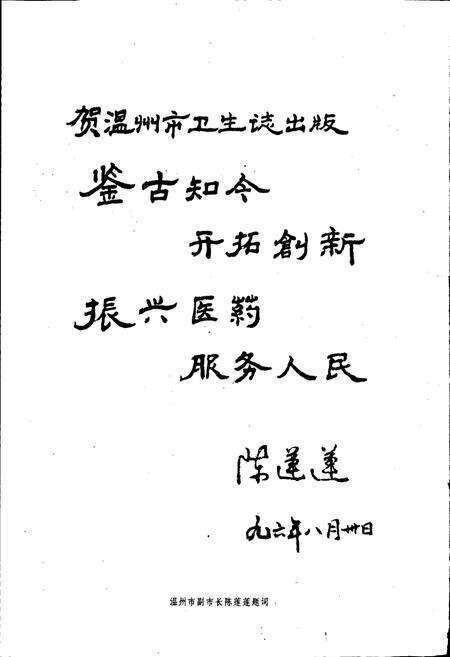 贺温州市卫生誌出版
鉴古知今
开拓創新
振兴医药
服务人民
陈莲莲
九六年八月卅日
温州市副市长陈莲莲题词